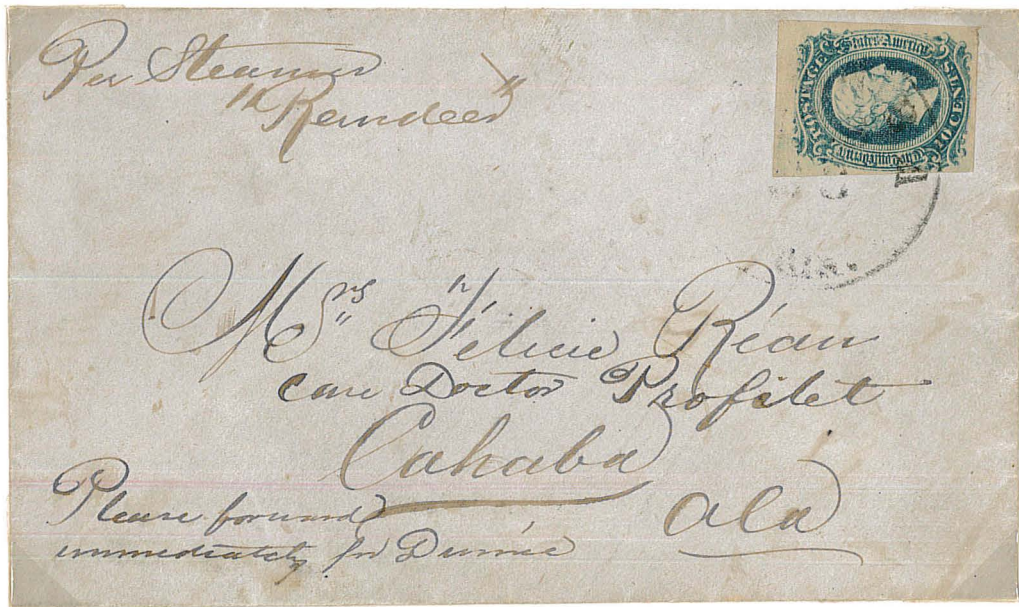 Per Steamer
"Reindeer"
The Confederate
States America
POSTAGE
10 CENTS
Mrs Félicie Réan
care Doctor Profilet
Cahaba
Ala
Please forward
immediately